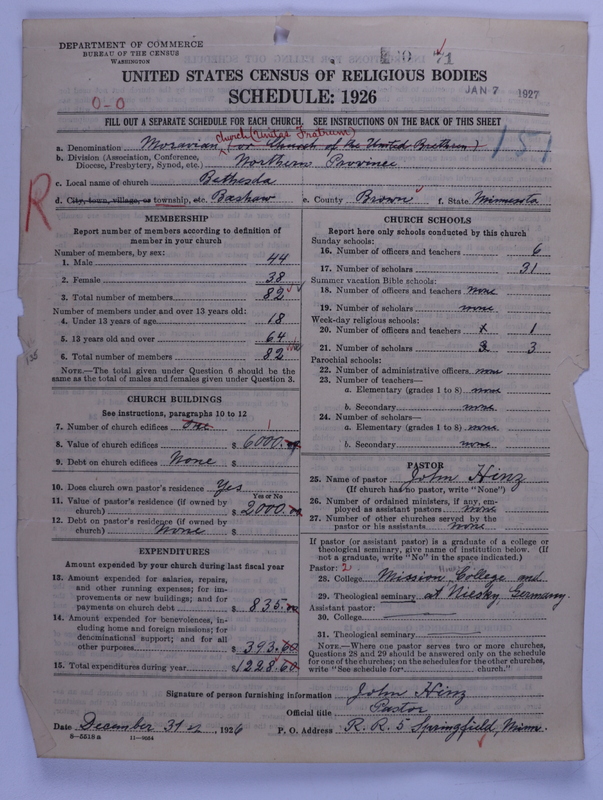 DEPARTMENT OF COMMERCE
BUREAU OF THE CENSUS
WASHINGTON
71
JAN 7 1927
UNITED STATES CENSUS OF RELIGIOUS BODIES
SCHEDULE: 1926
0-0
FILL OUT A SEPARATE SCHEDULE FOR EACH CHURCH. SEE INSTRUCTIONS ON THE BACK OF THIS SHEET
151
church (Unitas Fratrum)
a. Denomination Moravian (or Church of the United Brethren)
b. Division (Association, Conference, Diocese, Presbytery, Synod, etc.) Northern Province
c. Local name of church Bethesda
d. City, town, village, or township, etc. Bashaw e. County Brown f. State Minnesota
R
MEMBERSHIP
Report number of members according to definition of member in your church
Number of members, by sex:
1. Male 44
2. Female 38
3. Total number of members 82
Number of members under and over 13 years old:
4. Under 13 years of age 18
5. 13 years old and over 64
6. Total number of members 82
NOTE.—The total given under Question 6 should be the same as the total of males and females given under Question 3.
CHURCH BUILDINGS
See instructions, paragraphs 10 to 12
7. Number of church edifices One 1
8. Value of church edifices $ 6000.00
9. Debt on church edifices None $
10. Does church own pastor's residence? Yes
Yes or No
11. Value of pastor's residence (if owned by church) $ 2000.00
12. Debt on pastor's residence (if owned by church) None $
EXPENDITURES
Amount expended by your church during last fiscal year
13. Amount expended for salaries, repairs, and other running expenses; for improvements or new buildings; and for payments on church debt $ 835.00
14. Amount expended for benevolences, including home and foreign missions; for denominational support; and for all other purposes $ 393.60
15. Total expenditures during year $ 1228.60
CHURCH SCHOOLS
Report here only schools conducted by this church
Sunday schools:
16. Number of officers and teachers 6
17. Number of scholars 31
Summer vacation Bible schools:
18. Number of officers and teachers none
19. Number of scholars none
Week-day religious schools:
20. Number of officers and teachers 1 1
21. Number of scholars 3 3
Parochial schools:
22. Number of administrative officers none
23. Number of teachers—
a. Elementary (grades 1 to 8) none
b. Secondary none
24. Number of scholars—
a. Elementary (grades 1 to 8) none
b. Secondary none
PASTOR
25. Name of pastor John Hinz
(If church has no pastor, write "None")
26. Number of ordained ministers, if any, employed as assistant pastors none
27. Number of other churches served by the pastor or his assistants none
If pastor (or assistant pastor) is a graduate of a college or theological seminary, give name of institution below. (If not a graduate, write "No" in the space indicated.)
Pastor: 2
28. College Mission College and
29. Theological seminary at Niesky, Germany.
Assistant pastor:
30. College
31. Theological seminary
NOTE.—Where one pastor serves two or more churches, Questions 28 and 29 should be answered only on the schedule for one of the churches; on the schedules for the other churches, write "See schedule for church."
Signature of person furnishing information John Hinz
Official title Pastor
Date December 31st, 1926 P. O. Address R. R. 5 Springfield, Minn.
8-5518 a 11-9034